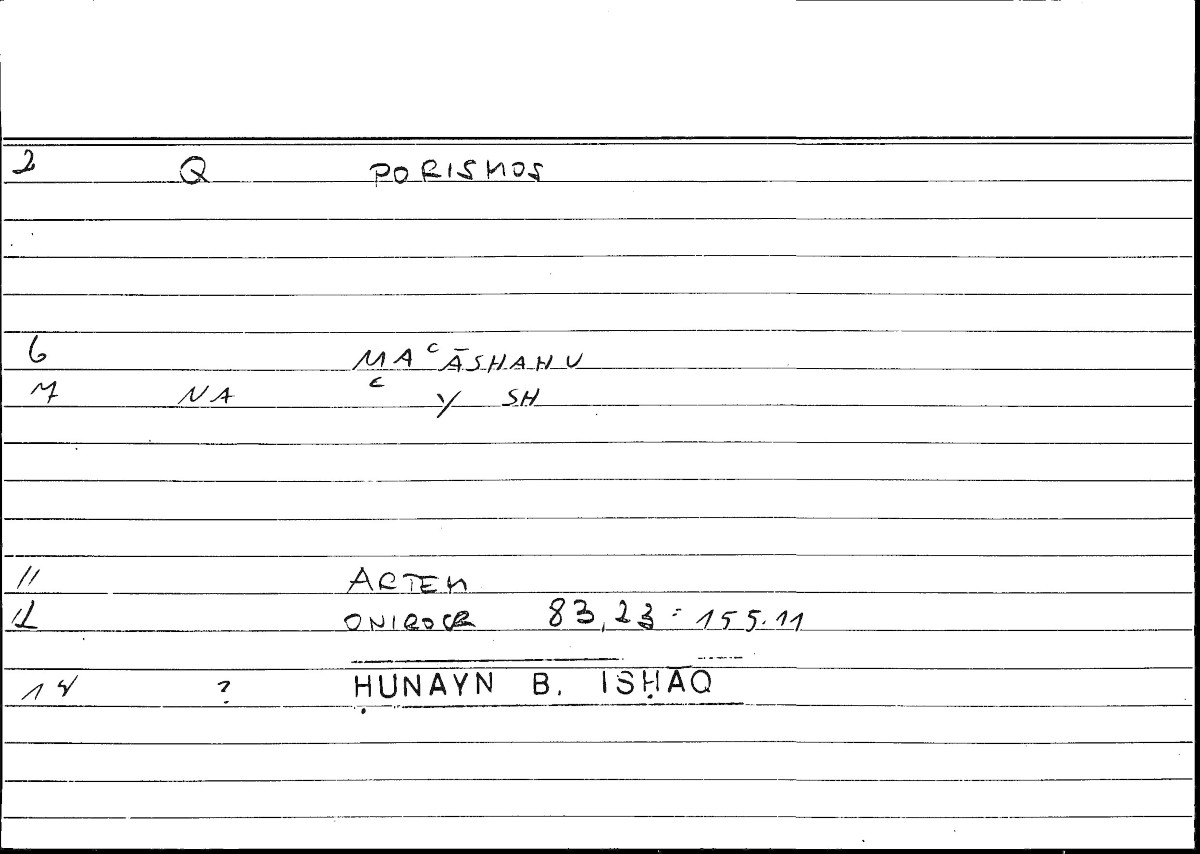 2 Q PORISMOS
6 MAʿĀSHAHU
7 NA ʿ Y SH
11 ARTEM
12 ONIROCR 83,23 = 155.11
14 ? ḤUNAYN B. ISḤĀQ